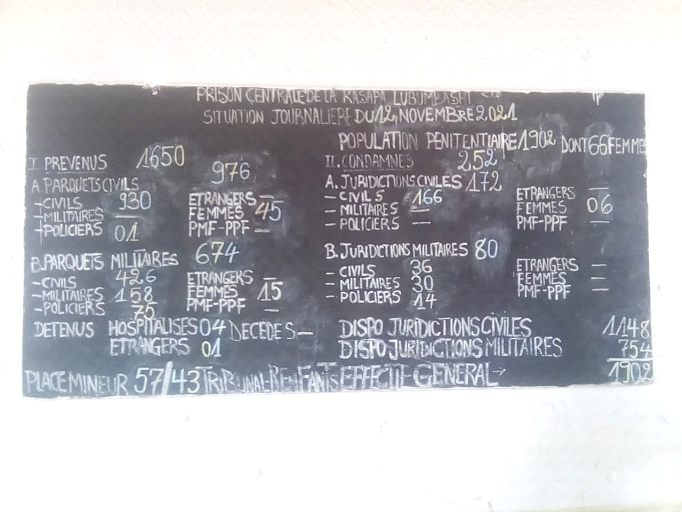 PRISON CENTRALE DE LA KASAPA LUBUMBASHI
SITUATION JOURNALIERE DU 12, NOVEMBRE 2021
POPULATION PENITENTIAIRE 1902 DONT 66 FEMMES
I. PREVENUS 1650
976
A PARQUETS CIVILS
- CIVILS 930
- MILITAIRES —
- POLICIERS 01
ETRANGERS —
FEMMES 45
PMF-PPF —
B. PARQUETS MILITAIRES 674
- CIVILS 426
- MILITAIRES 158
- POLICIERS 75
ETRANGERS —
FEMMES 15
PMF-PPF —
DETENUS HOSPITALISES 04 DECEDES —
ETRANGERS 01
II. CONDAMNES 252
A. JURIDICTIONS CIVILES 172
- CIVILS 166
- MILITAIRES —
- POLICIERS —
ETRANGERS —
FEMMES 06
PMF-PPF —
B. JURIDICTIONS MILITAIRES 80
- CIVILS 36
- MILITAIRES 30
- POLICIERS 14
ETRANGERS —
FEMMES —
PMF-PPF —
DISPO JURIDICTIONS CIVILES 1148
DISPO JURIDICTIONS MILITAIRES 754
PLACE MINEUR 57/43 TRIBUNAL-PR ENFANTS EFFECTIF GENERAL → 1902